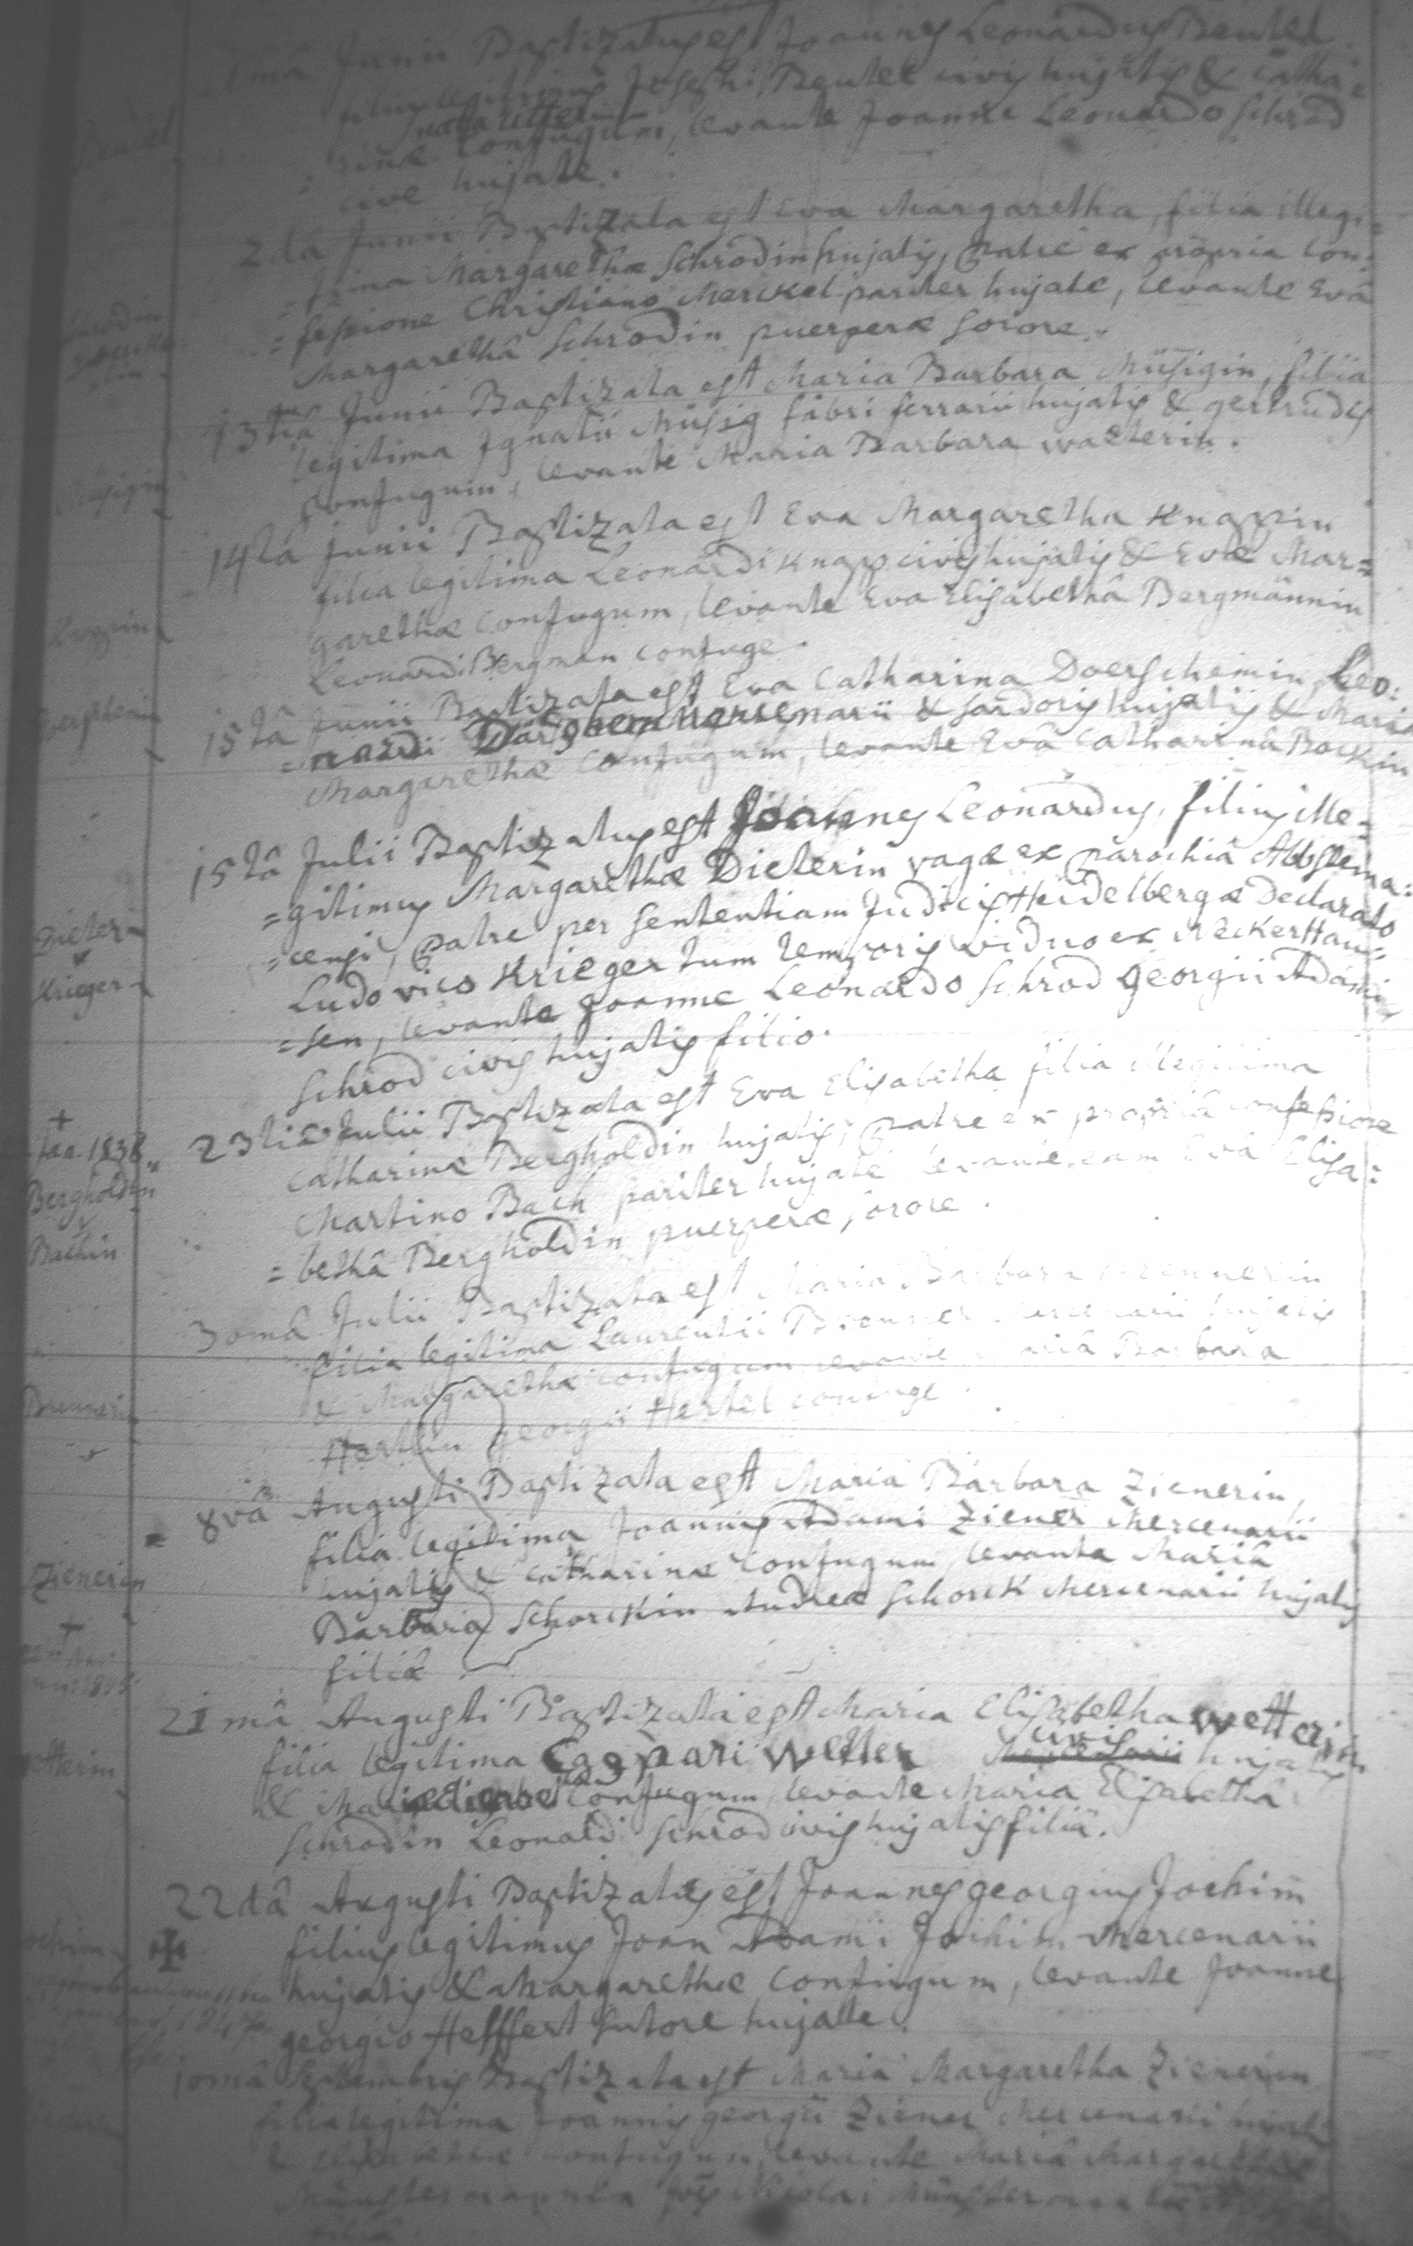 1mâ Junii Baptizatus est Joannes Leonardus Beutel
filius legitimus Josephi Beutel civis hujatis & Catha=
=rinæ Conjugum, levante Joanne Leonardo Schrod
cive hujate.
2dâ Junii Baptizata est Eva Margaretha, filia illegi=
=tima Margarethæ Schrodin hujatis, patre ex propria con=
=fessione Christiano Merckel pariter hujate, levante Evâ
Margarethâ Schrodin puerperæ sorore.
13tiâ Junii Baptizata est Maria Barbara Müssigin, filia
legitima Ignatii Müssig fabri ferrarii hujatis & gertrudis
Conjugum, levante Maria Barbara walterin.
14tâ Junii Baptizata est Eva Margaretha Knappin
filia legitima Leonardi Knapp civis hujatis & Evæ Mar=
garethæ Conjugum, levante Eva Elisabethâ Bergmännin
Leonardi Bergman conjuge.
15tâ Junii Baptizata est Eva Catharina Doerscheimin, Leo=
=nardi mercenarii & sardoris hujatis & Maria
Margarethæ Conjugum, levante Evâ Catharinâ Bockin
15tâ Julii Baptizatus est Joannes Leonardus, filius ille=
=gitimus Margarethæ Dieterin vagæ ex parochiâ Abbstema=
=censi, patre per sententiam Judicis Heidelbergæ Declarato
Ludovico Krieger tum temporis viduo ex Neckerhau=
=sen, levante Joanne Leonardo Schrod georgii Adami
Schrod civis hujatis filio.
Dieterin
Krieger
23tiâ Julii Baptizata est Eva Elisabetha filia illegitima
Catharinæ Bergholdin hujatis, patre ex propriâ confessione
Martino Bach pariter hujate levante eam Evâ Elisa=
=bethâ Bergholdin puerperæ sorore.
1838
Bergholdin
Bachin
30mâ Julii Baptizata est Maria Barbara Brennerin
filia legitima Laurentii Brenner mercenarii hujatis
& Margarethæ conjugum levante Mariâ Barbara
Hertlin georgii Hertel conjuge
Brennerin
8vâ Augusti Baptizata est Maria Barbara Zienerin,
filia legitima Joannis Adami Ziener Mercenarii
hujatis & Catharinæ Conjugum, levante Mariâ
Barbara Schorckin Andreæ Schorck Mercenarii hujatis
filiâ
Zienerin
21mâ Augusti Baptizata est Maria Elisabetha Wetterin
filia legitima Caspari Wetter civis hujatis
& Mariæ Conjugum, levante Maria Elisabethâ
Schrodin Leonardi Schrod civis hujatis filiâ.
22dâ Augusti Baptizatus est Joannes georgius Jochim
filius legitimus Joan Adami Jochim Mercenarii
hujatis & Margarethæ Conjugum, levante Joanne
georgio Helffert sutore hujate.
10mâ Septembris Baptizata est Maria Margaretha Zienerin
filia legitima Joannis georgii Ziener Mercenarii hujatis
& Conjugum, levante Mariâ Margarethâ